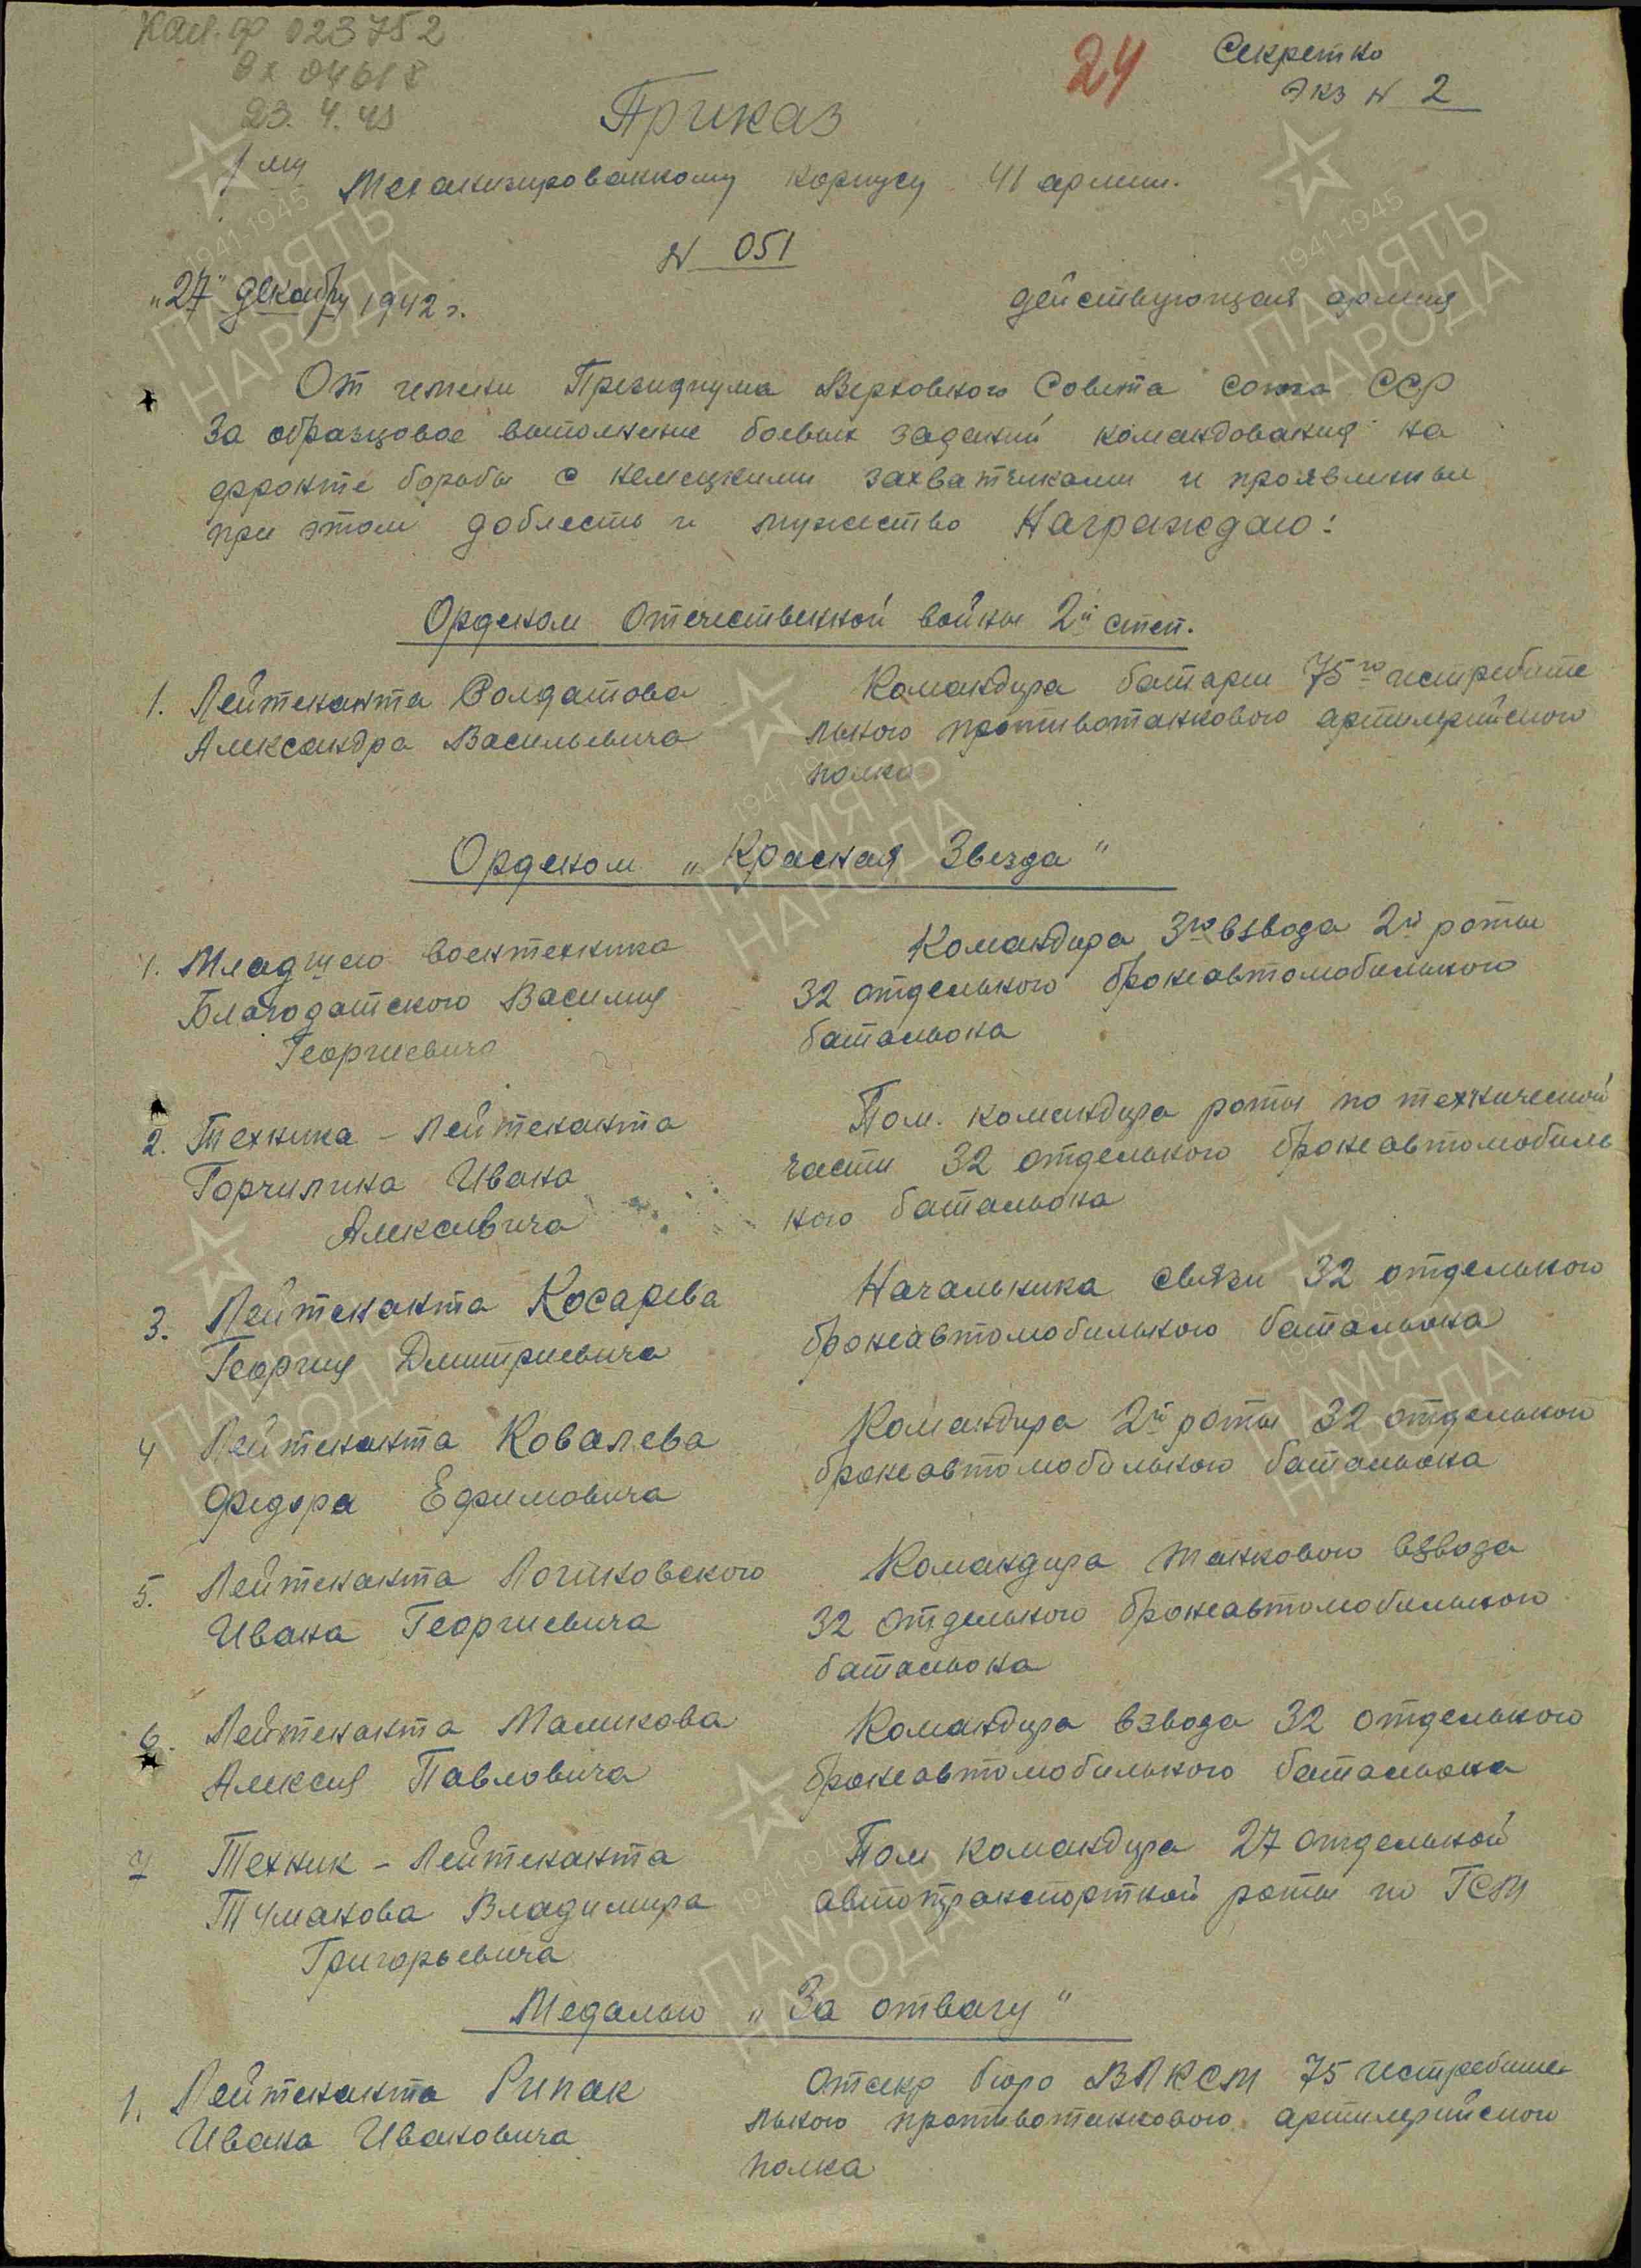 Секретно
24
Экз № 2
23. 4. 43
Приказ
1му Механизированному корпусу 41 армии.
№ 051
"27" декабря 1942 г.
действующая армия
От имени Президиума Верховного Совета союза ССР
За образцовое выполнение боевых заданий командования на
фронте борьбы с немецкими захватчиками и проявленные
при этом доблесть и мужество Награждаю:
Орденом Отечественной войны 2й степ.
1. Лейтенанта Солдатова
Александра Васильевича
Командира батареи 75го истребите
льного противотанкового артилерийского
полка
Орденом "Красная Звезда"
1. Младшего воентехника
Благодатского Василия
Георгиевича
Командира 3го взвода 2й роты
32 отдельного бронеавтомобильного
батальона
2. Техника - Лейтенанта
Горчилина Ивана
Алексеевича
Пом. командира роты по технической
части 32 отдельного бронеавтомобиль
ного батальона
3. Лейтенанта Косарева
Георгия Дмитриевича
Начальника связи 32 отдельного
бронеавтомобильного батальона
4 Лейтенанта Ковалева
Федора Ефимовича
Командира 2й роты 32 отдельного
бронеавтомобильного батальона
5. Лейтенанта Логиновского
Ивана Георгиевича
Командира танкового взвода
32 отдельного бронеавтомобильного
батальона
6. Лейтенанта Маликова
Алексея Павловича
Командира взвода 32 отдельного
бронеавтомобильного батальона
7 Техник - Лейтенанта
Тумакова Владимира
Григорьевича
Пом командира 27 отдельной
автотранспортной роты по ГСМ
Медалью "За отвагу"
1. Лейтенанта Рипак
Ивана Ивановича
Отсекр бюро ВЛКСМ 75 истребите
льного противотанкового артилерийского
полка
1941-1945
ПАМЯТЬ
НАРОДА